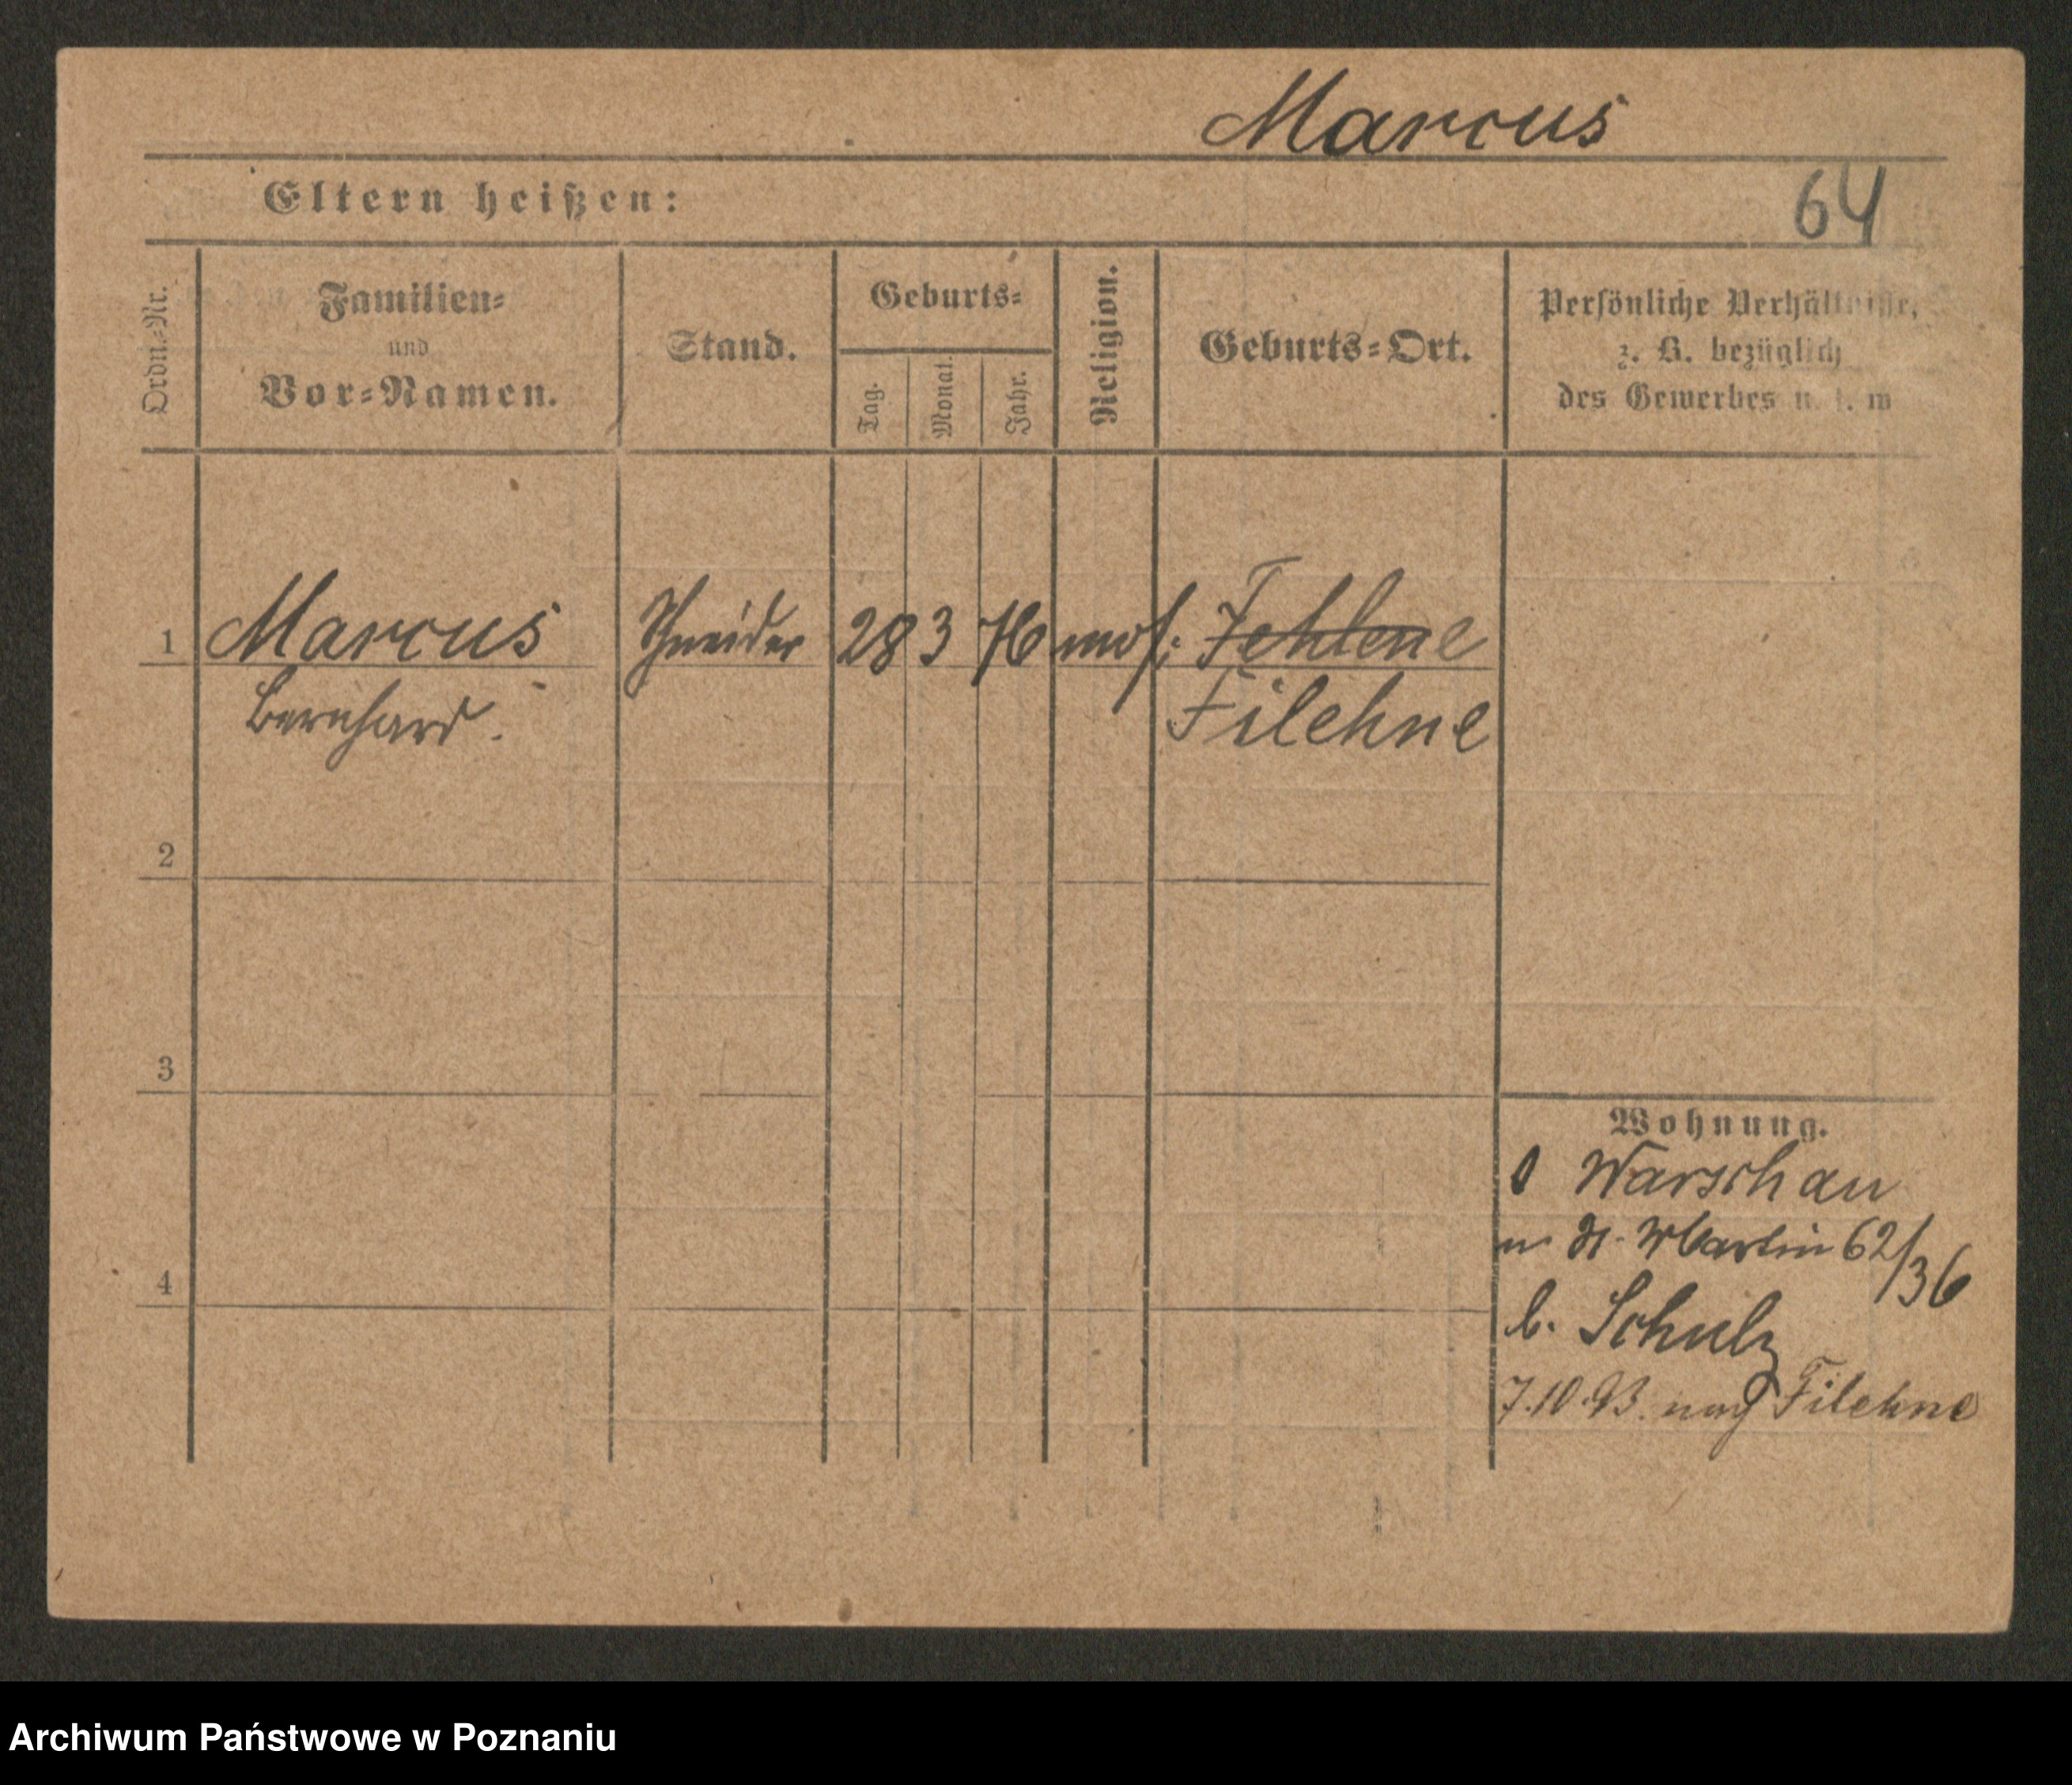 Marcus
Eltern heißen:
64
Ordn.-Nr.
Familien-
und
Vor-Namen.
Stand.
Geburts-
Tag.
Monat.
Jahr.
Religion.
Geburts-Ort.
Persönliche Verhältnisse,
z. B. bezüglich
des Gewerbes u. s. w
1 Marcus Schneider 28 3 76 mos: Fehlene
Bernhard. Filehne
2
3
4
Wohnung.
Warschau
St. Martin 62/36
b. Schulz
7.10.93. nach Filehne
Archiwum Państwowe w Poznaniu